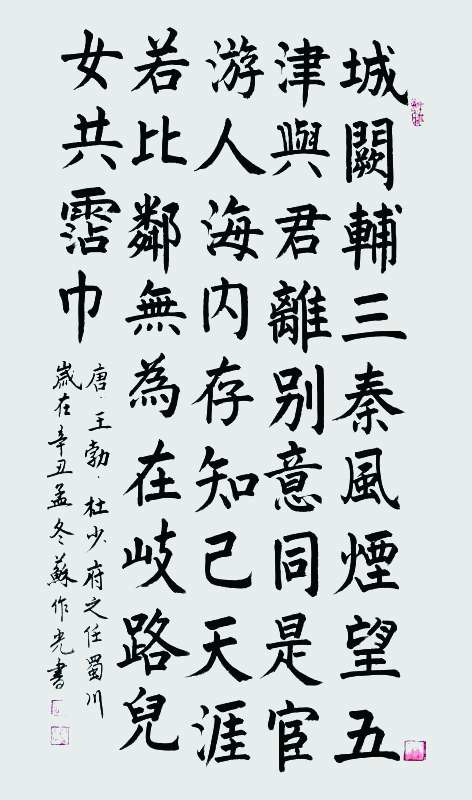 城闕輔三秦風煙望五
津與君離别意同是宦
游人海内存知己天涯
若比鄰無為在岐路兒
女共霑巾
唐·王勃·杜少府之任蜀川
歲在辛丑孟冬蘇作光書